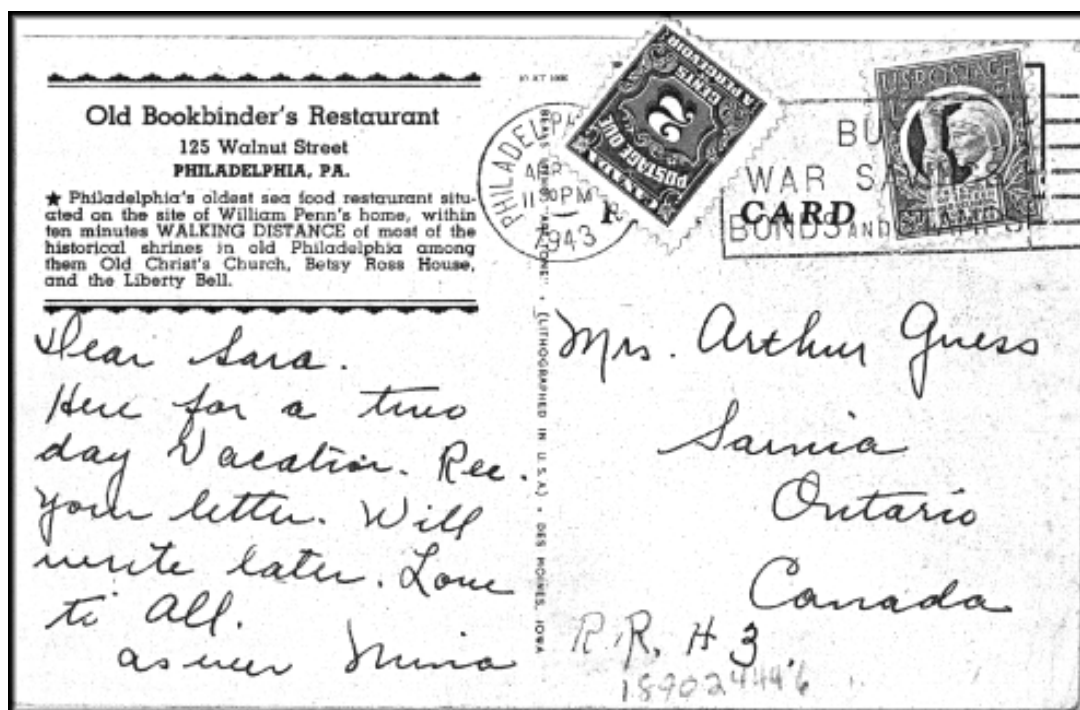 Old Bookbinder's Restaurant
125 Walnut Street
PHILADELPHIA, PA.
★ Philadelphia's oldest sea food restaurant situ-
ated on the site of William Penn's home, within
ten minutes WALKING DISTANCE of most of the
historical shrines in old Philadelphia among
them Old Christ's Church, Betsy Ross House,
and the Liberty Bell.
Dear Sara.
Here for a two
day Vacation. Rec.
your letter. Will
write later. Love
to All.
as ever Mina
(LITHOGRAPHED IN U.S.A.) • DES MOINES, IOWA
APR
1943
CANADA
POSTAGE DUE
2
CENTS
U.S. POSTAGE
WAR
BONDS AND STAMPS
CARD
Mrs. Arthur Guess
Sarnia
Ontario
Canada
R.R. # 3.